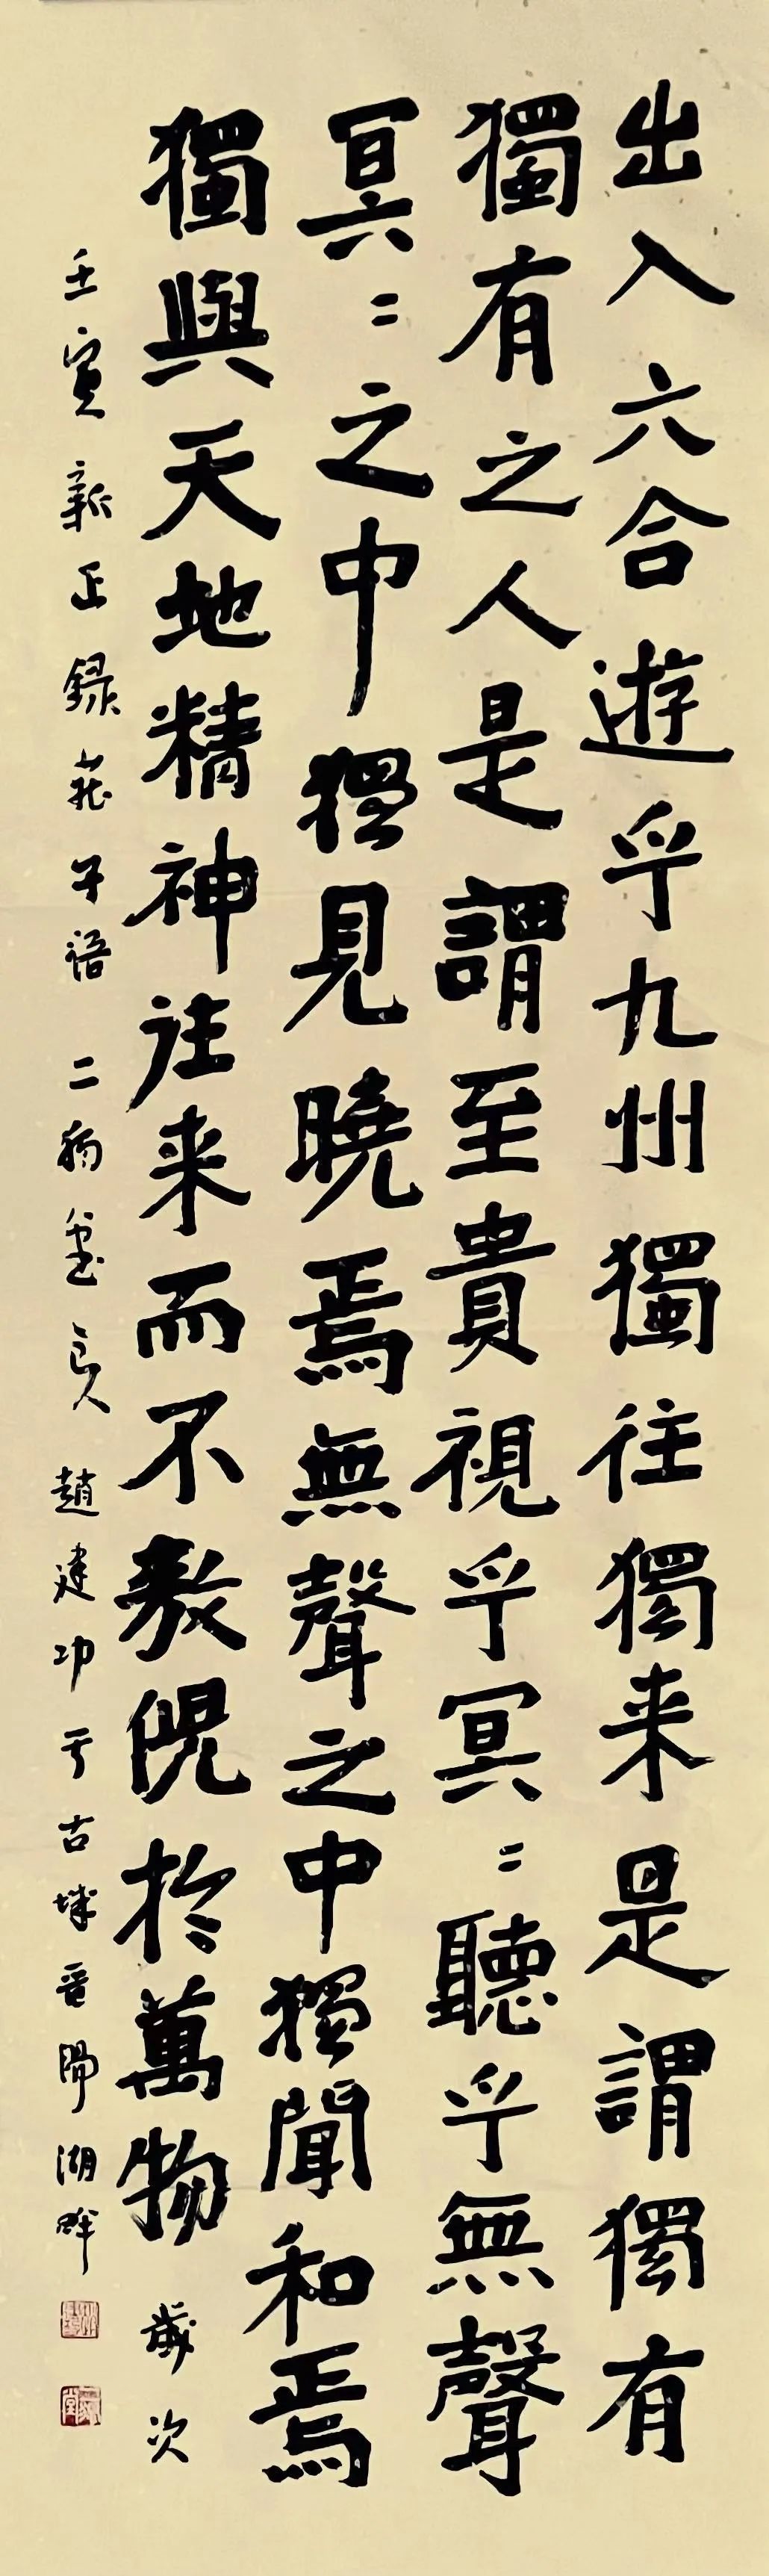 出入六合遊乎九州獨往獨来是謂獨有
獨有之人是謂至貴視乎冥〻聽乎無聲
冥〻之中獨見曉焉無聲之中獨聞和焉
獨與天地精神往来而不敖倪於萬物 歲次
壬寅新正錄莊子語 二獨堂主人 趙建功于古城晉陽湖畔